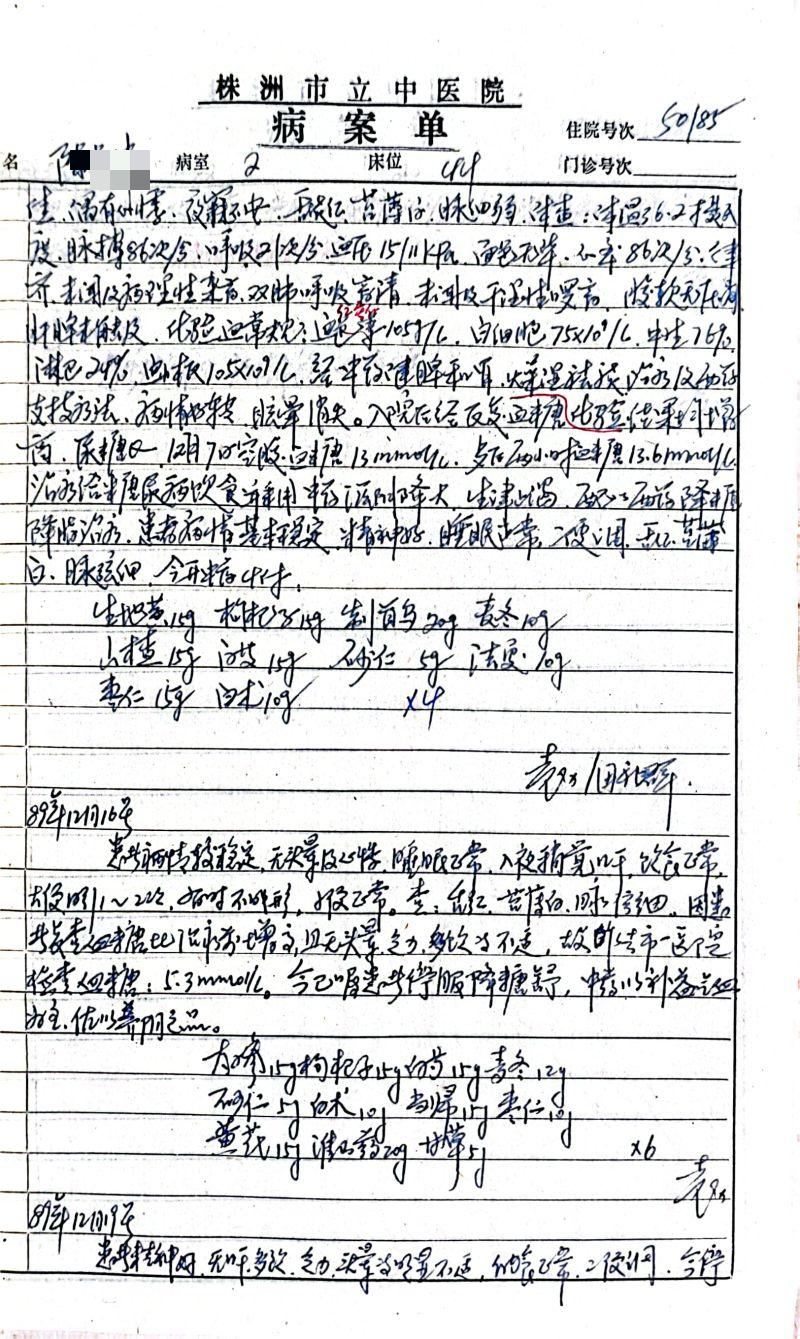 株洲市立中医院
病案单
住院号次 50185
名 陈 病室 2 床位 44 门诊号次
佳,偶有心慌,夜寐不安,舌淡红,苔薄白,脉细弱,体查:体温36.2摄氏
度,脉搏86次/分,呼吸21次/分,血压15/11kPa,面色无华,心率86次/分,律
齐,未闻及病理性杂音,双肺呼吸音清,未闻及干湿性啰音,腹软无压痛
肝脾未触及,化验血常规:血色 105g/L,白细胞75x10⁹/L,中性76%
淋巴24%,血小板105x10⁹/L,经中药健脾和胃,燥湿祛痰治疗及西药
支持疗法,病情好转,眩晕消失。入院后经反复血糖化验结果均增
高,尿糖,12月7日空腹血糖13mmol/L,餐后两小时血糖13.6mmol/L
治疗给糖尿病饮食并采用中药,配以西药降糖
降脂治疗,患者病情基本稳定,精神好,睡眠正常,二便调,舌红,苔薄
白,脉弦细,今开中药4付,
生地黄15g 枸杞子15g 制首乌20g 麦冬10g
山楂15g 白芍15g 砂仁5g 法夏10g
枣仁15g 白术10g x4
袁
89年12月16号
患者病情较稳定,无头晕及心慌,睡眠正常,入夜稍觉口干,饮食正常,
大便日1~2次,有时不成形,小便正常。查:舌红,苔薄白,脉弦细,因患
者查血糖比治疗前增高,且无头晕,乏力,多饮等不适,故的去市一医院
检查血糖:5.3mmol/L。今已嘱患者停服降糖药,中药以补益气血
为主,佐以养阴之品。
太子参15g 枸杞子15g 白芍15g 麦冬12g
砂仁5g 白术10g 当归15g 枣仁10g
黄芪15g 淮山药20g 甘草5g x6
袁
89年12月19号
患者精神好,无口干多饮,乏力,头晕等明显不适,饮食正常,二便调,今停